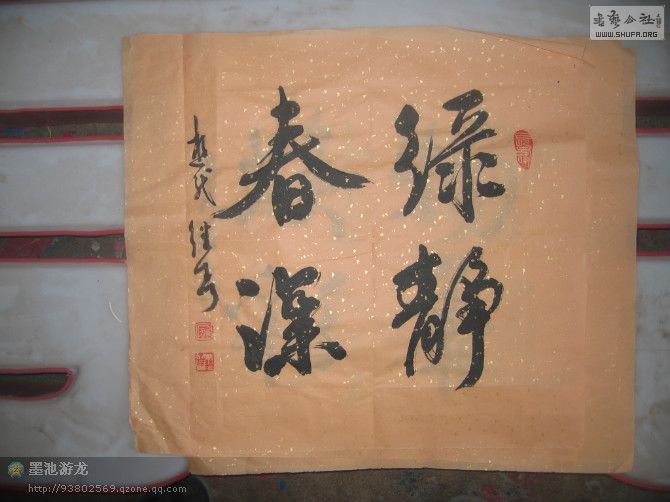 绿静
春深
书艺公社
WWW.SHUFA.ORG
墨池游龙
http://93802569.qzone.qq.com